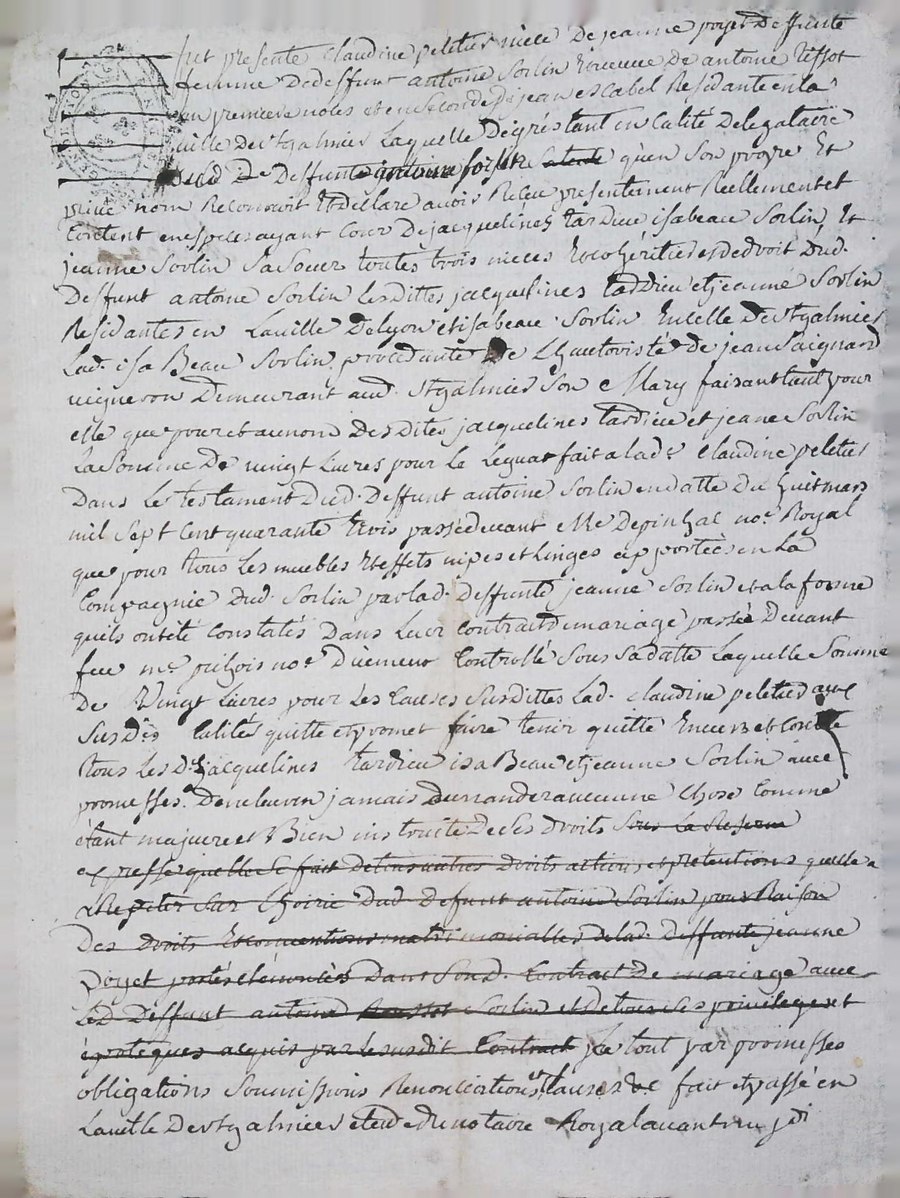 fut presente Claudine peletier niece De jeanne poyet Deffunte
femme De deffunt antoine Sorlin Et veuve De antoine
en premiere noles et en seconde De jean escabel Residante en la
ville De stgalmier Laquelle De gré s tant en Calité De legataire
Dud De Deffunt antoine q'uen Son propre Et
privé nom Reconnoit Et declare avoir Receu presentement Reellement et
Contant en especes ayant Cour De jacquelines tardieu isabeau Sorlin Et
jeanne Sorlin Sa Soeur toutes trois nieces Et coheritieres de droit Dud.
Deffunt antoine Sorlin Lesdittes jacquelines tardieu et jeanne Sorlin
Residantes en La ville De lyon et isabeau Sorlin En celle de stgalmier
Lad. isa Beau Sorlin procedante De L'hautoristé de jean Saignard
vigneron Demeurant aud. stgalmier Son Mary faisant tant pour
elle que pour et au nom Desdites jacquelines tardieu et jeane Sorlin
La Somme De vingt Livres pour Le Leguat fait a lade Claudine peletier
Dans Le testament Dud. Deffunt antoine Sorlin en datte Du huit mars
mil Sept Cent quarante trois passé devant Me Depinhac nore Royal
que pour tous Les meubles Et effets nipes et Linges apportées en La
Compagnie Dud. Sorlin par lad. Deffunte jeanne Sorlin et a la forme
quils ont été Constatés Dans Leur Contrait de mariage passée Devant
feu me nore Controllé Sous Sa datte Laquelle Somme
De Vingt Livres pour Les Causes Susdittes Lad. Claudine peletier aux
Susdes Calités quitte et promet faire tenir quitte Envers et Contre
tous Les Des jacquelines tardieu isa Beau et jeanne Sorlin avec
promesses De ne leur en jamais Demander aucune Chose Comme
étant majeure et Bien instruite De Ses droits Sous La Reserve
expresse quelle Se fait De tous autres Droits actions et pretentions quelle a
a Repeter Sur L'hoirie Dud Defunt antoine Sorlin pour Raison
Des Droits Et conventions matrimonialles De lad. Deffunte jeanne
poyet portés et énoncés Dans Sond. Contract De mariage avec
Led Deffunt antoine Sorlin et de tous Ses privileges et
ipoteques acquis par Le susdit Contract Le tout par promesses
obligations Soumissions Renonciations et Clauses fait et passé en
La ville De stgalmier etude Du notaire Royal avant midi